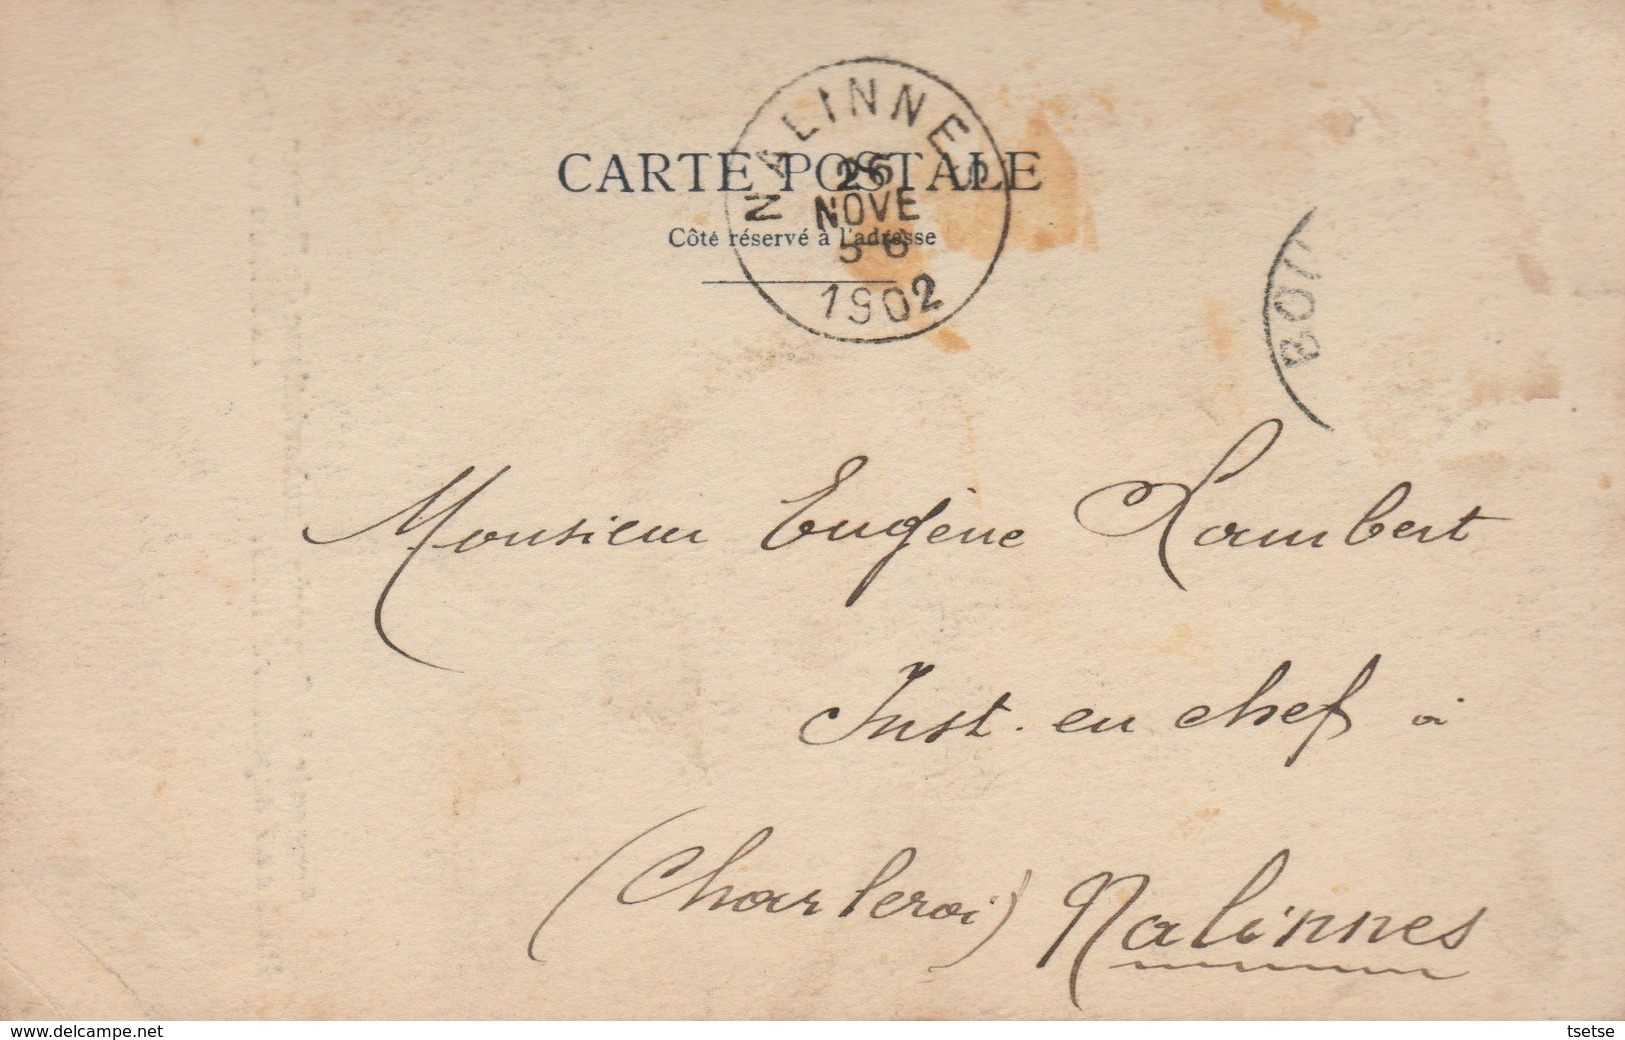 NALINNES
CARTE POSTALE
26
NOVE
Côté réservé à l'adresse
5-6
1902
BOU
Monsieur Eugène Lambert
Inst. en chef à
(Charleroi) Nalinnes
www.delcampe.net
tsetse